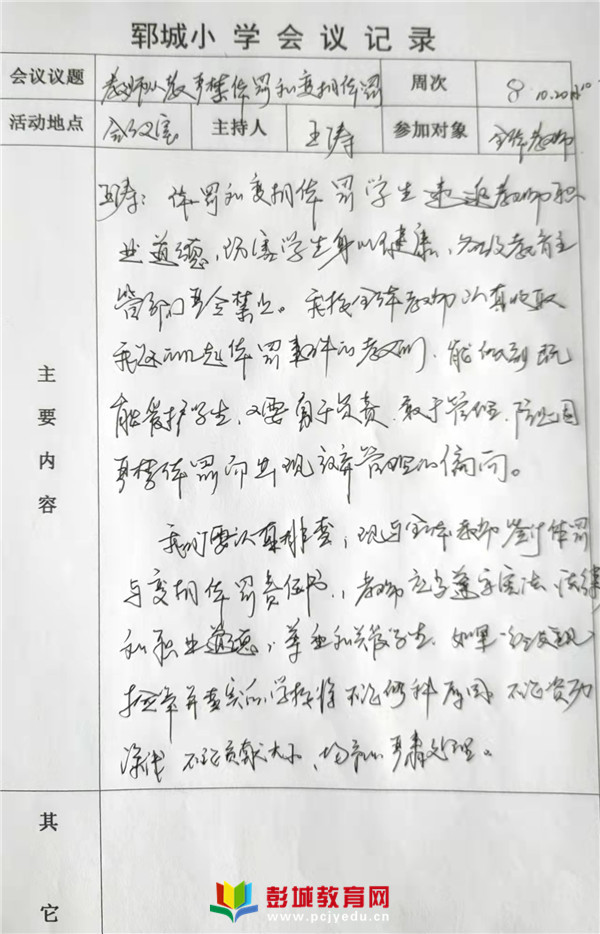 郓城小学会议记录
会议议题 教师从教严禁体罚和变相体罚 周次 8 10.20
活动地点 会议室 主持人 王涛 参加对象 全体教师
主要内容
王涛：体罚和变相体罚学生 教师职
业道德，伤害学生身心健康，各级教育主
管部门 禁止。我校全体教师 认真吸取
体罚事件的教训，能做到既
能爱护学生，又要勇于负责，敢于管理，防止因
严禁体罚而出现放弃管理的倾向。
我们要认真排查，现与全体教师签订体罚
与变相体罚责任书，教师应当遵守宪法、法律
和职业道德，尊重和关爱学生，如果一经发现
检举并查实的，学校将不论何种原因，不论资历
深浅，不论贡献大小，均 严肃处理。
其它
彭城教育网
www.pcjyedu.cn